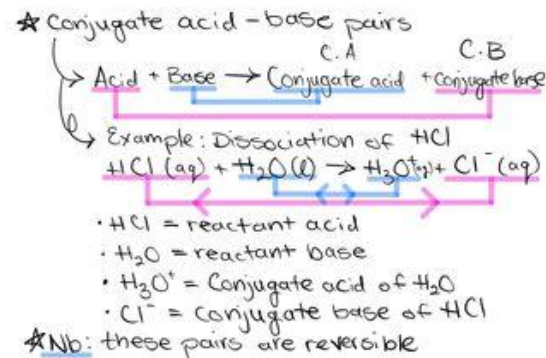 ★ Conjugate acid-base pairs
C.A C.B
Acid + Base → Conjugate acid + Conjugate base
Example: Dissociation of HCl
HCl (aq) + H₂O(l) → H₃O⁺(aq) + Cl⁻ (aq)
• HCl = reactant acid
• H₂O = reactant base
• H₃O⁺ = Conjugate acid of H₂O
• Cl⁻ = Conjugate base of HCl
★ Nb: these pairs are reversible